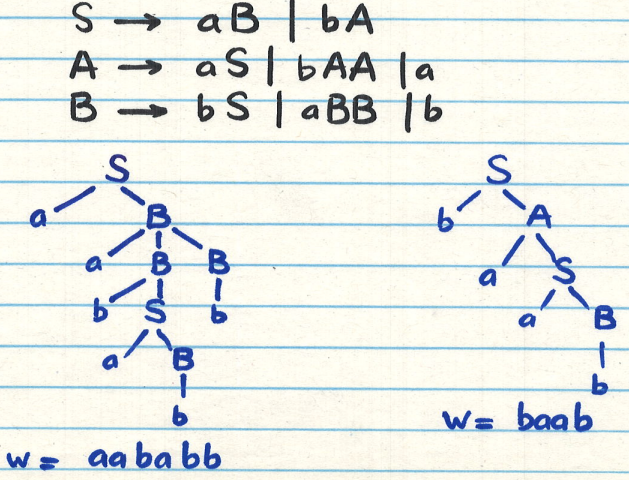 S → aB | bA
A → aS | bAA | a
B → bS | aBB | b
S
a B
a B B
b S b
a B
b
w = aababb
S
b A
a S
a B
b
w = baab